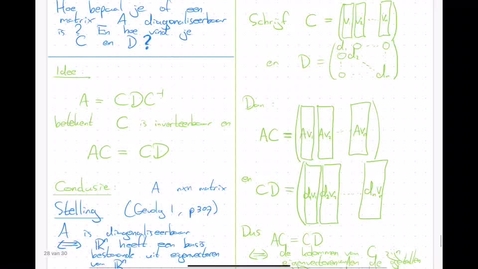 Hoe bepaal je of een
matrix A diagonaliseerbaar
is? En hoe vind je
C en D?
Idee:
A = CDC⁻¹
betekent C is inverteerbaar en
AC = CD
Conclusie: A nxn matrix
Stelling. (Gevolg 1, p307)
A is diagonaliseerbaar
⟺ ℝⁿ heeft een basis
bestaande uit eigenvectoren
van ℝⁿ
28 van 30
Schrijf C = (v₁ v₂ ... vₙ)
en D = (d₁ 0
0 ... dₙ)
Dan:
AC = (Av₁ Av₂ ... Avₙ)
en
CD = (d₁v₁ d₂v₂ ... dₙvₙ)
Dus AC = CD
⟺ de kolommen van C zijn
eigenvectoren